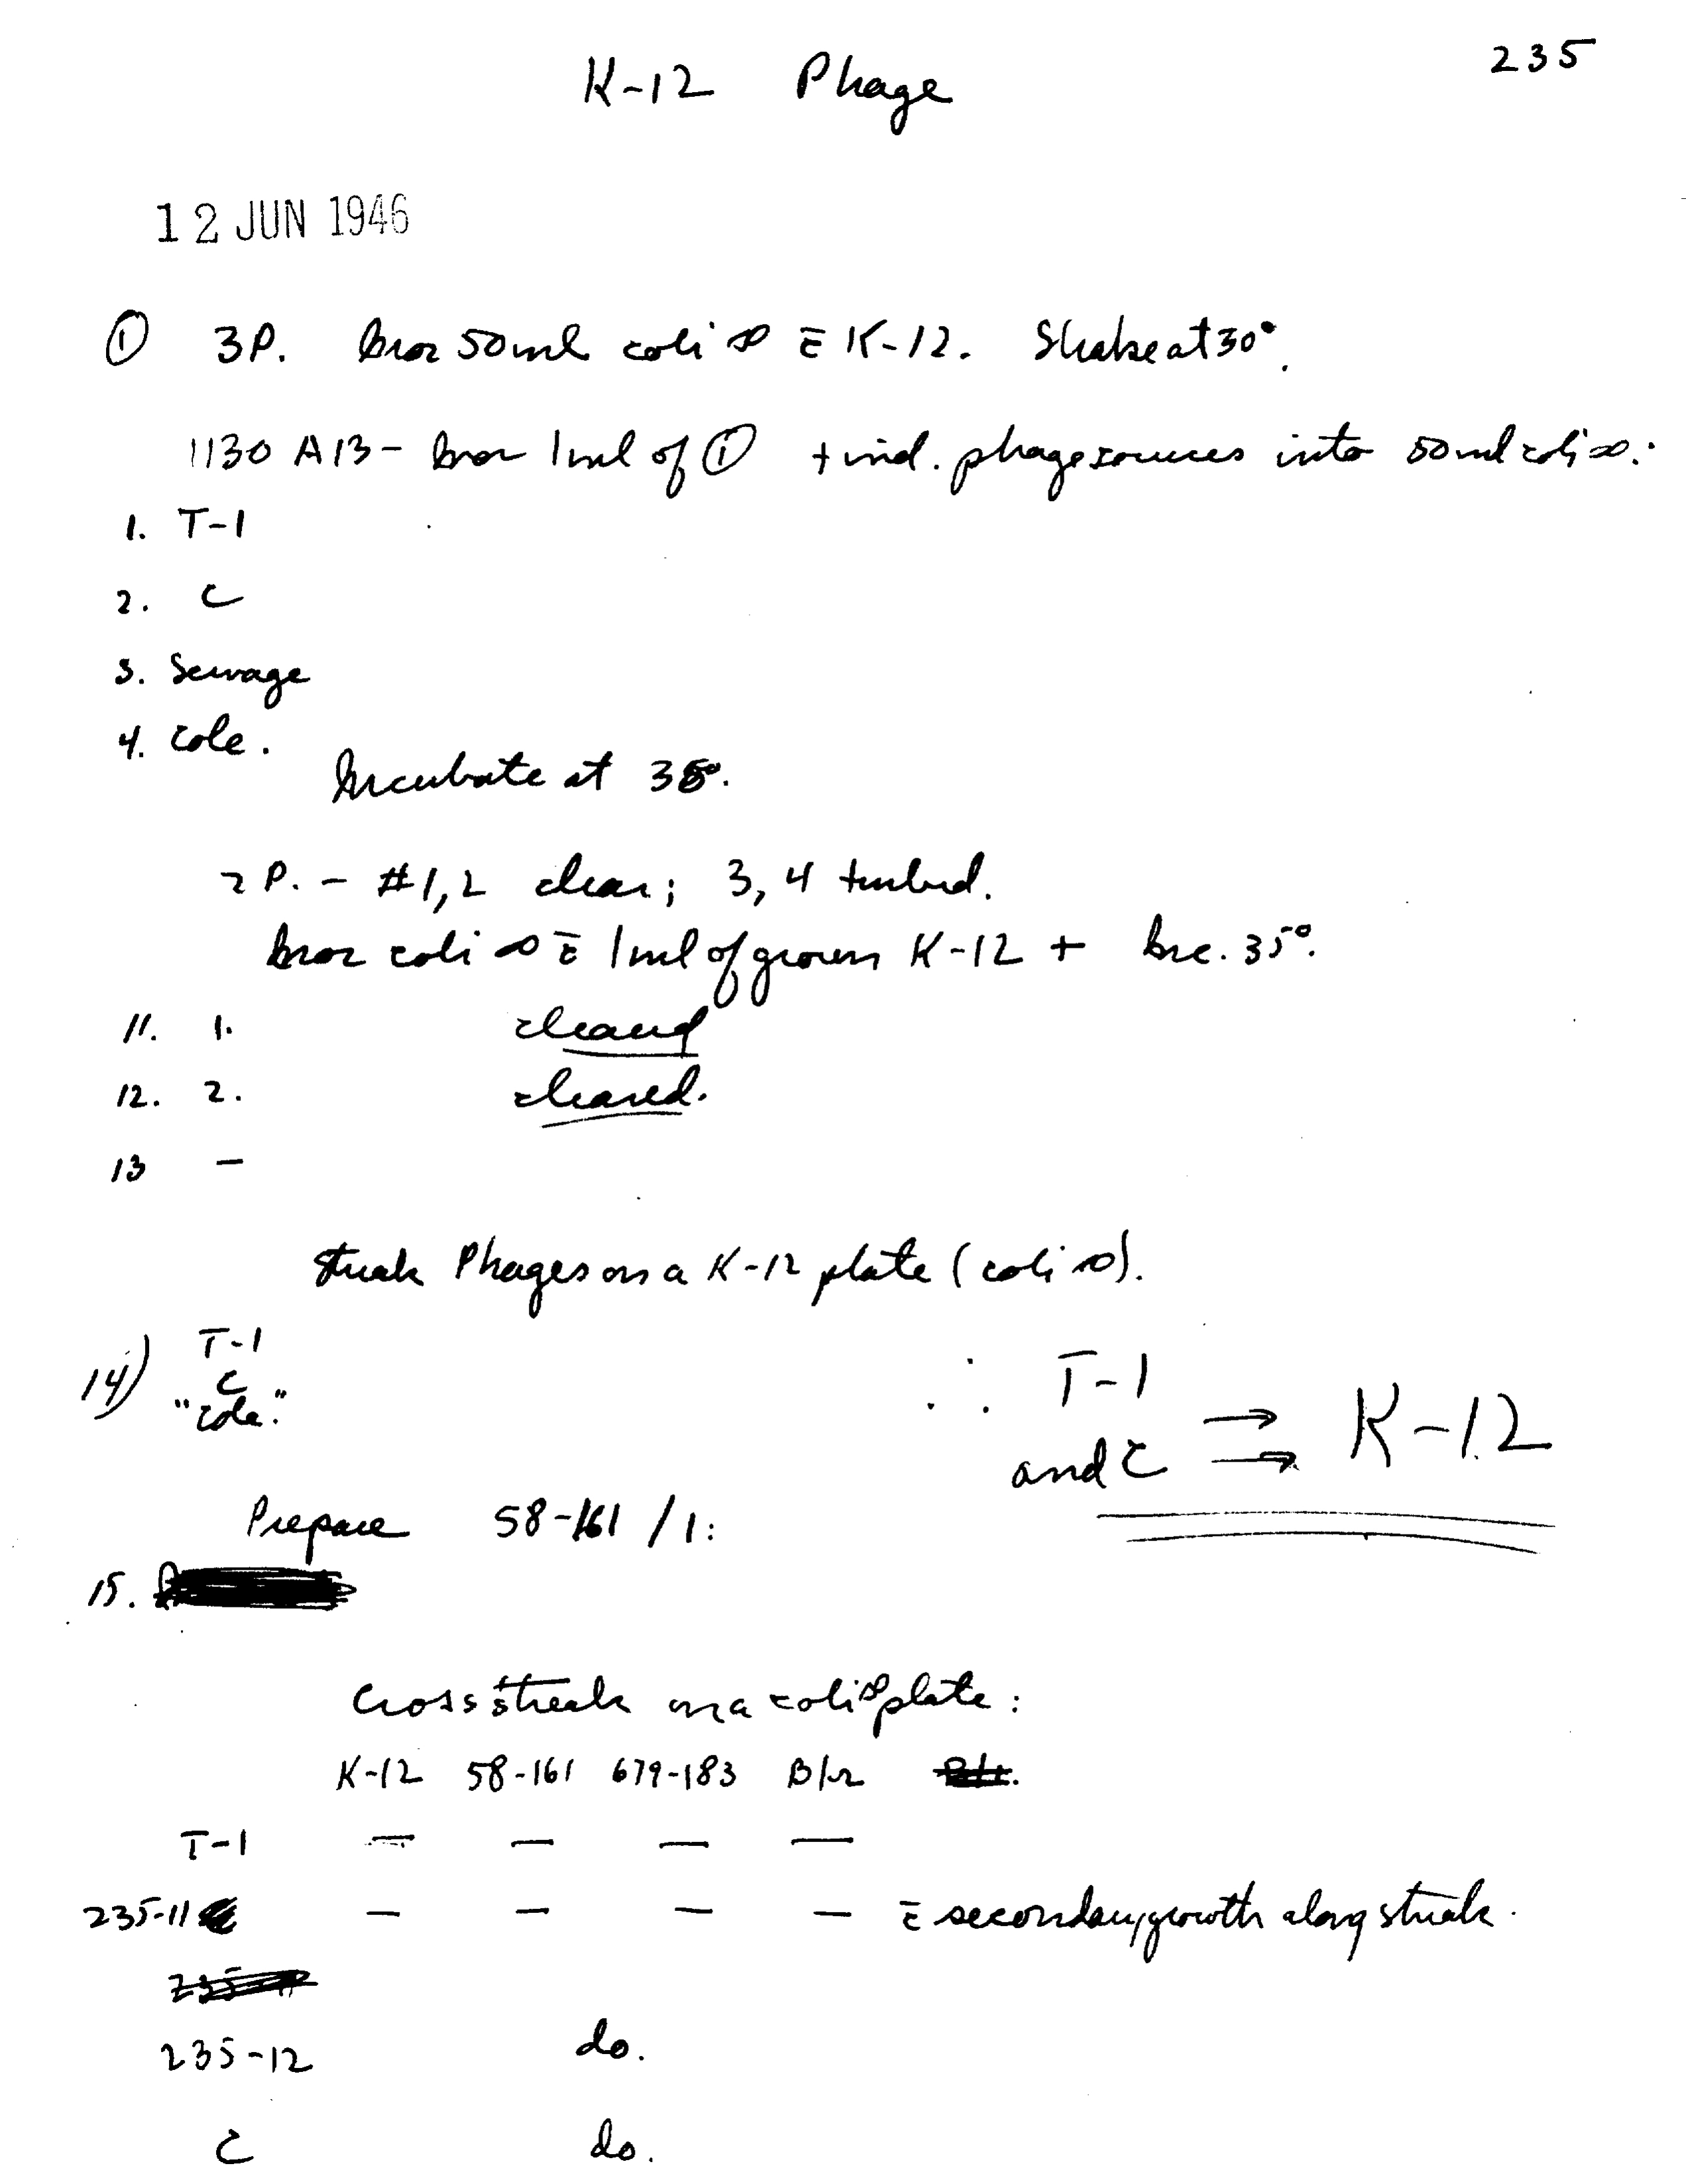 235
K-12 Phage
12 JUN 1946
① 3P. Inoc 50 ml coli ∞ c̄ K-12. Shake at 30°.
1130 A13 - Inoc 1 ml of ① + ind. phage sources into 50 ml coli ∞.
1. T-1
2. C
3. Sewage
4. cole.
Incubate at 35°.
2 P. - #1, 2 clear; 3, 4 turbid.
Inoc coli ∞ c̄ 1 ml of grown K-12 + Inc. 35°.
11. 1. cleared
12. 2. cleared.
13 -
Streak Phages on a K-12 plate (coli ∞).
14) T-1
C
"cole."
∴ T-1
and C ⇉ K-12
Prepare 58-161 /1:
15.
Cross streak on a coli ∞ plate:
K-12 58-161 679-183 B/r
T-1 — — — —
235-11 — — — — c̄ secondary growth along streak.
235-12 do.
C do.